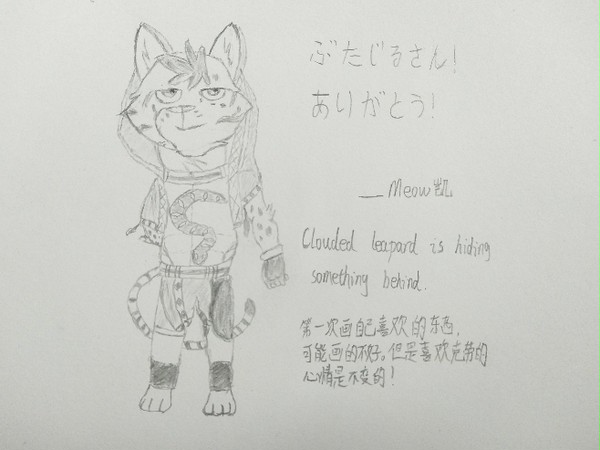 ぶたじるさん!
ありがとう!
—Meow凯
Clouded leopard is hiding
something behind.
第一次画自己喜欢的东西,
可能画的不好。但是喜欢克劳的
心情是不变的!